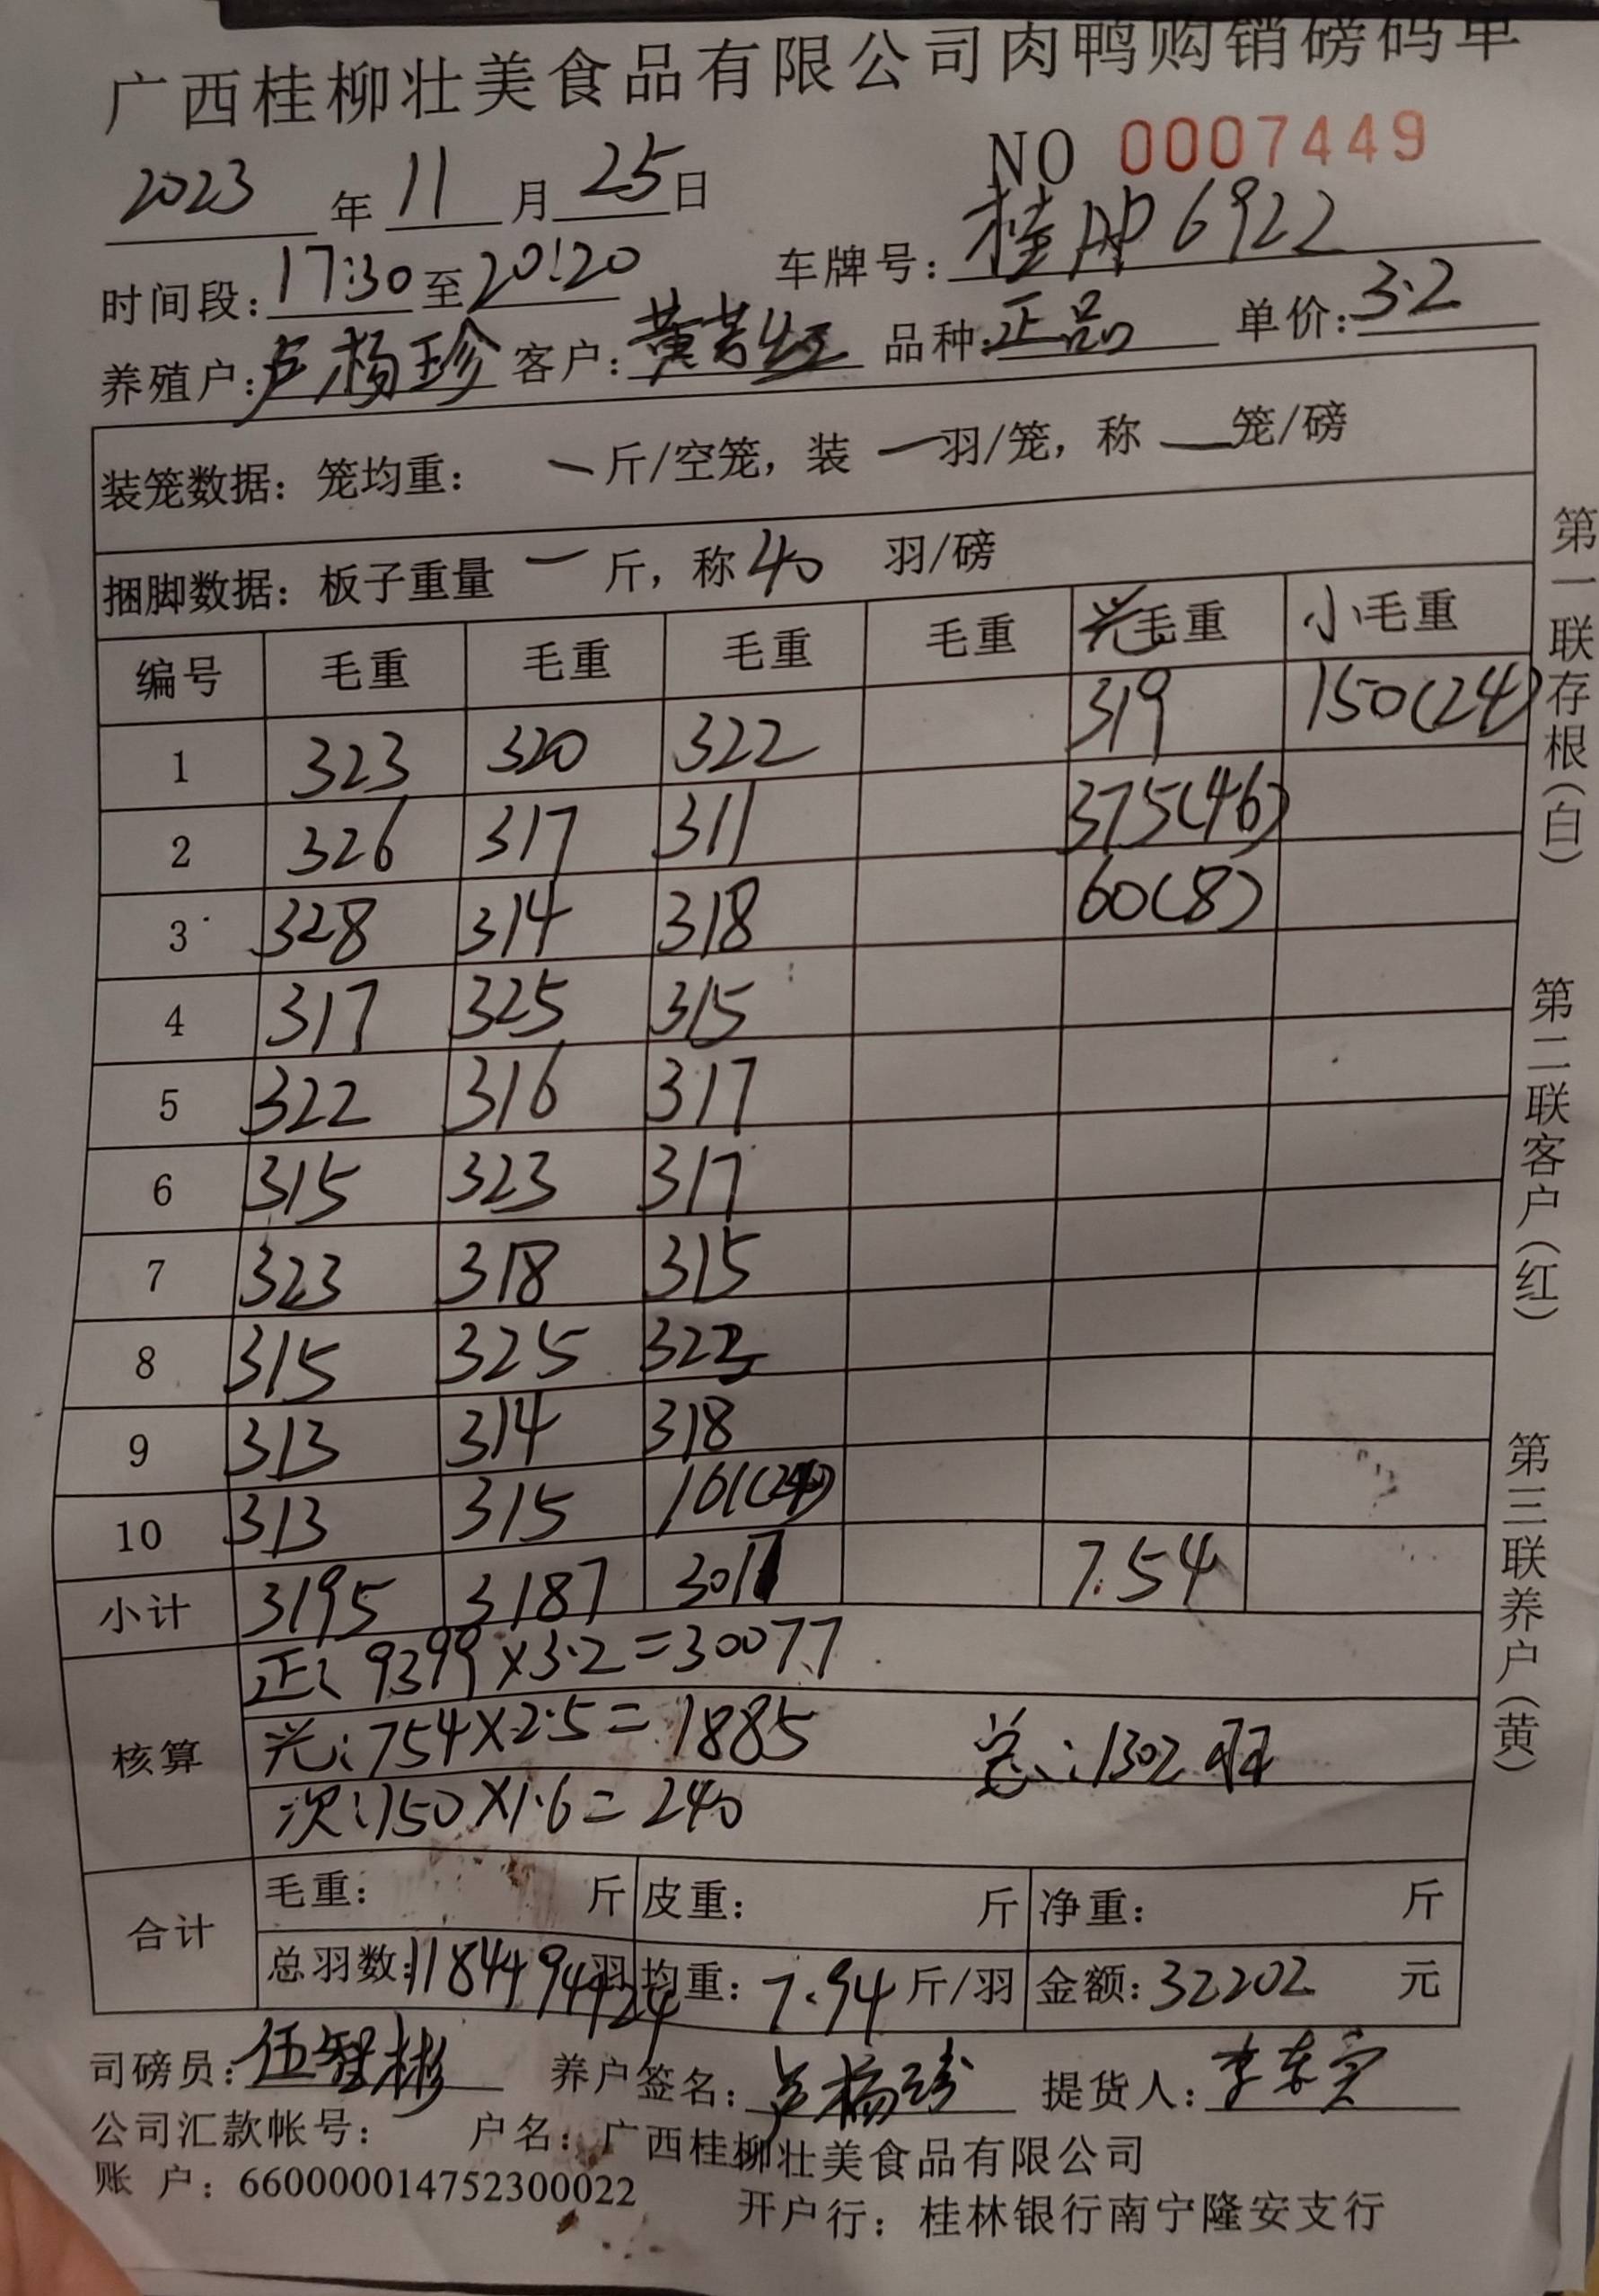 广西桂柳壮美食品有限公司肉鸭购销磅码单
NO 0007449
2023 年 11 月 25 日
时间段: 17:30 至 20:20 车牌号: 桂 6922
养殖户: 卢杨珍 客户: 黄 品种: 正品 单价: 3.2
装笼数据: 笼均重: 一 斤/空笼, 装 一 羽/笼, 称 — 笼/磅
捆脚数据: 板子重量 一 斤, 称 40 羽/磅
编号 毛重 毛重 毛重 毛重 毛重 小毛重
1 323 320 322 319 150(24)
2 326 317 311 375(46)
3 328 314 318 60(8)
4 317 325 315
5 322 316 317
6 315 323 317
7 323 318 315
8 315 325
9 313 314 318
10 313 315
小计 3195 3187 3017 7.54
核算
正: 9399×3.2=30077
光: 754×2.5=1885 总: 1302 羽
次: 150×1.6=240
合计
毛重: 斤 皮重: 斤 净重: 斤
总羽数: 1184+94+24 羽 均重: 7.94 斤/羽 金额: 32202 元
司磅员: 伍智彬 养户签名: 卢杨珍 提货人: 李
公司汇款帐号: 户名: 广西桂柳壮美食品有限公司
账 户: 660000014752300022 开户行: 桂林银行南宁隆安支行
第一联存根(白)
第二联客户(红)
第三联养户(黄)